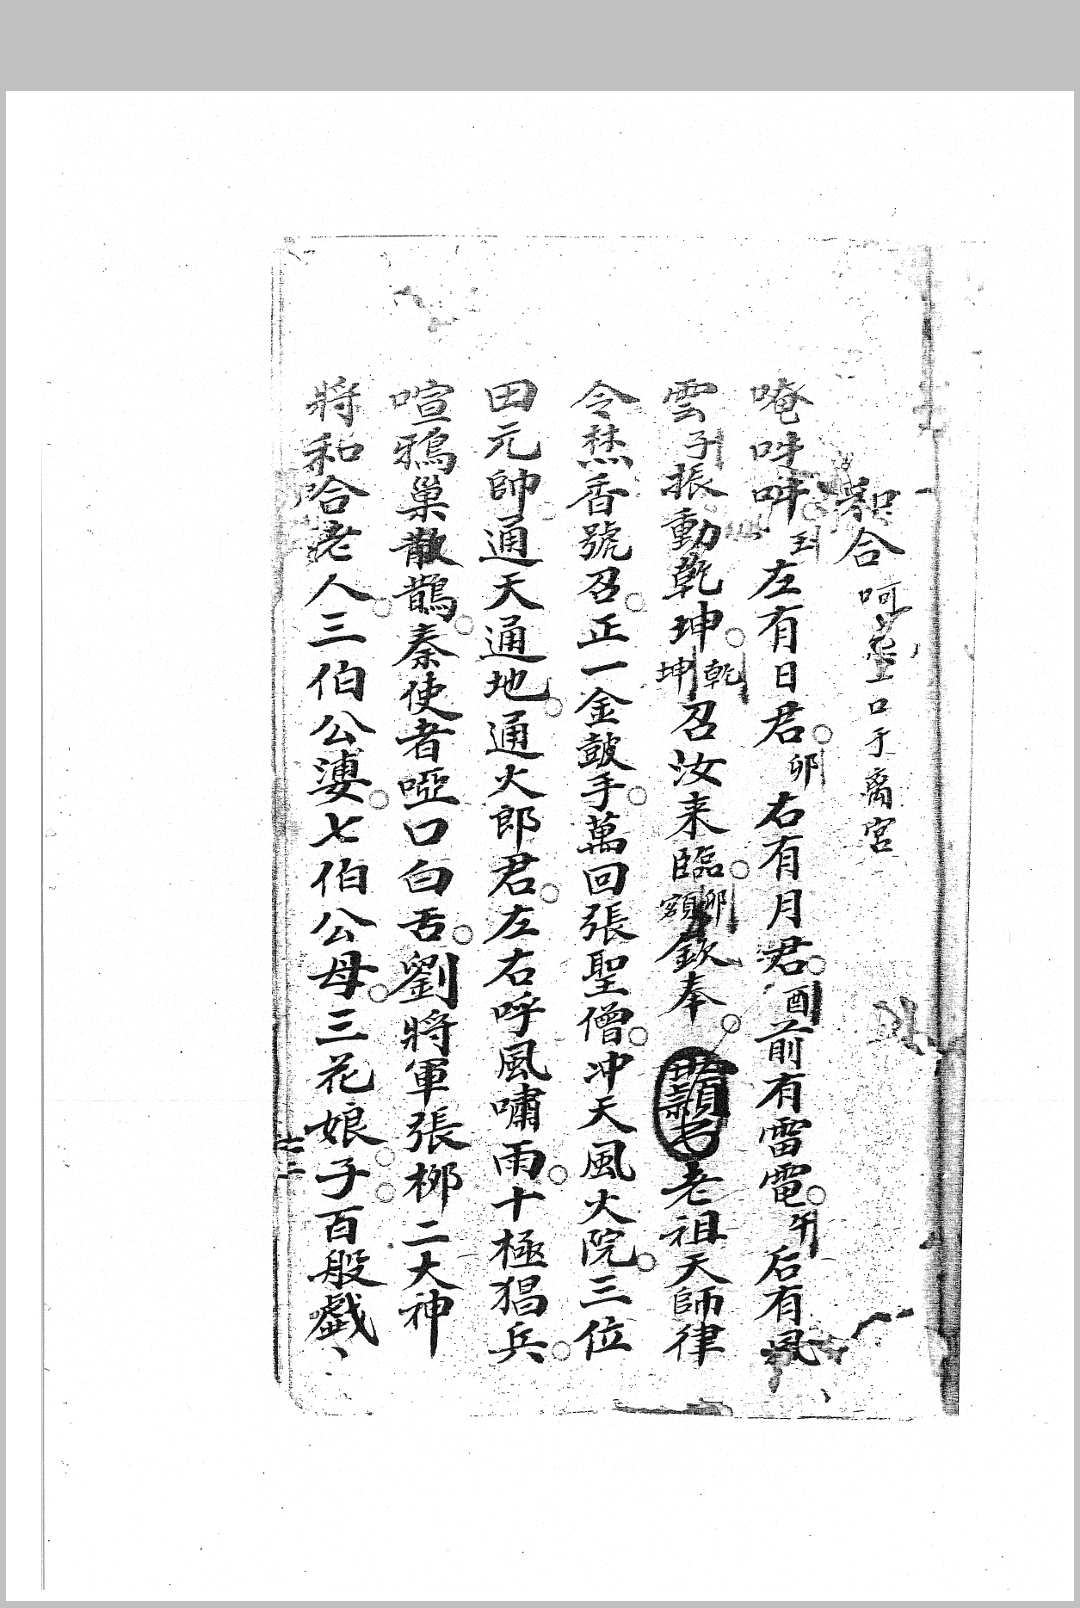 和合 呵 口于离宮
唵吽吽玉左有日君卯右有月君酉前有雷電午后有風
雲子振動乾坤乾坤召汝来臨卯額欽奉 老祖天師律
令焚香號召正一金皷手萬回張聖僧冲天風火院三位
田元帥通天通地通火郎君左右呼風嘯雨十極猖兵
喧鴉巢散鵲秦使者啞口白舌劉將軍張栁二大神
將和哈老人三伯公婆七伯公母三花娘子百般戯
七二